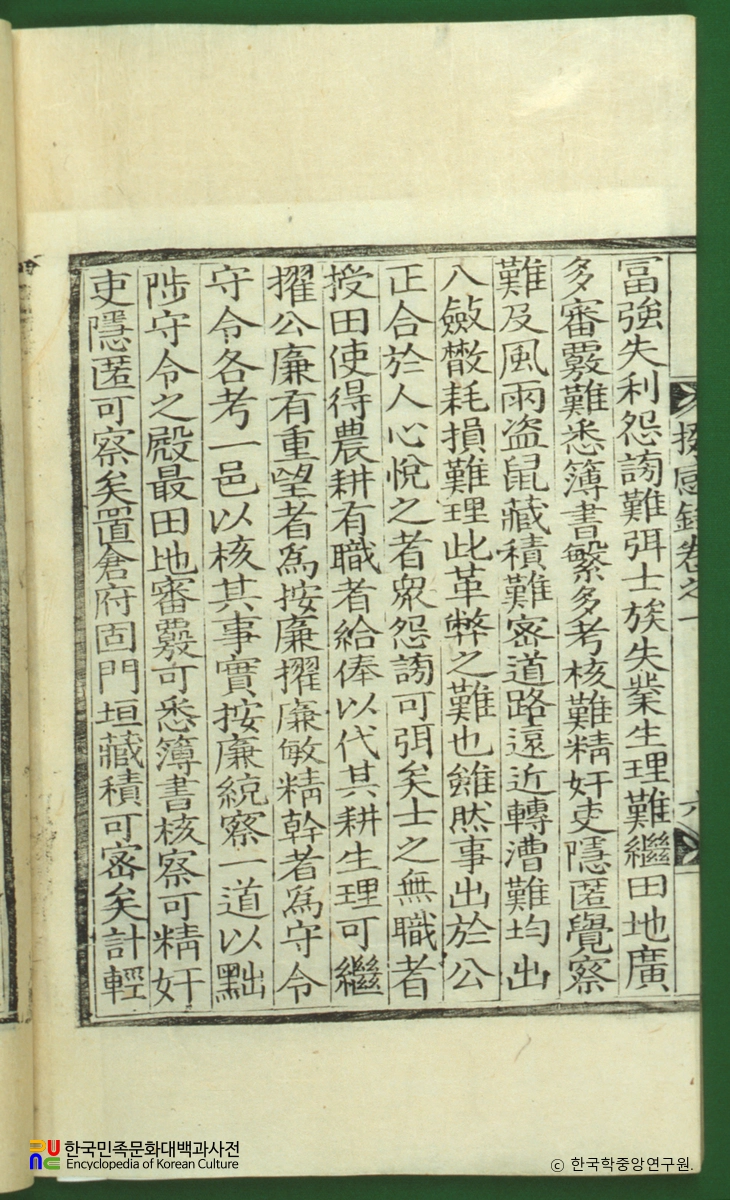 卷之一 六
冨強失利怨謗難弭士族失業生理難繼田地廣
多審覈難悉簿書繁多考核難精奸吏隱匿覺察
難及風雨盗鼠藏積難密道路遠近轉漕難均出
入斂散耗損難理此革弊之難也雖然事出於公
正合於人心悅之者衆怨謗可弭矣士之無職者
授田使得農耕有職者給俸以代其耕生理可繼
擢公廉有重望者爲按廉擢廉敏精幹者爲守令
守令各考一邑以核其事實按廉統察一道以黜
陟守令之殿最田地審覈可悉簿書核察可精奸
吏隱匿可察矣置倉府固門垣藏積可密矣計輕
한국민족문화대백과사전
Encyclopedia of Korean Culture
ⓒ 한국학중앙연구원.